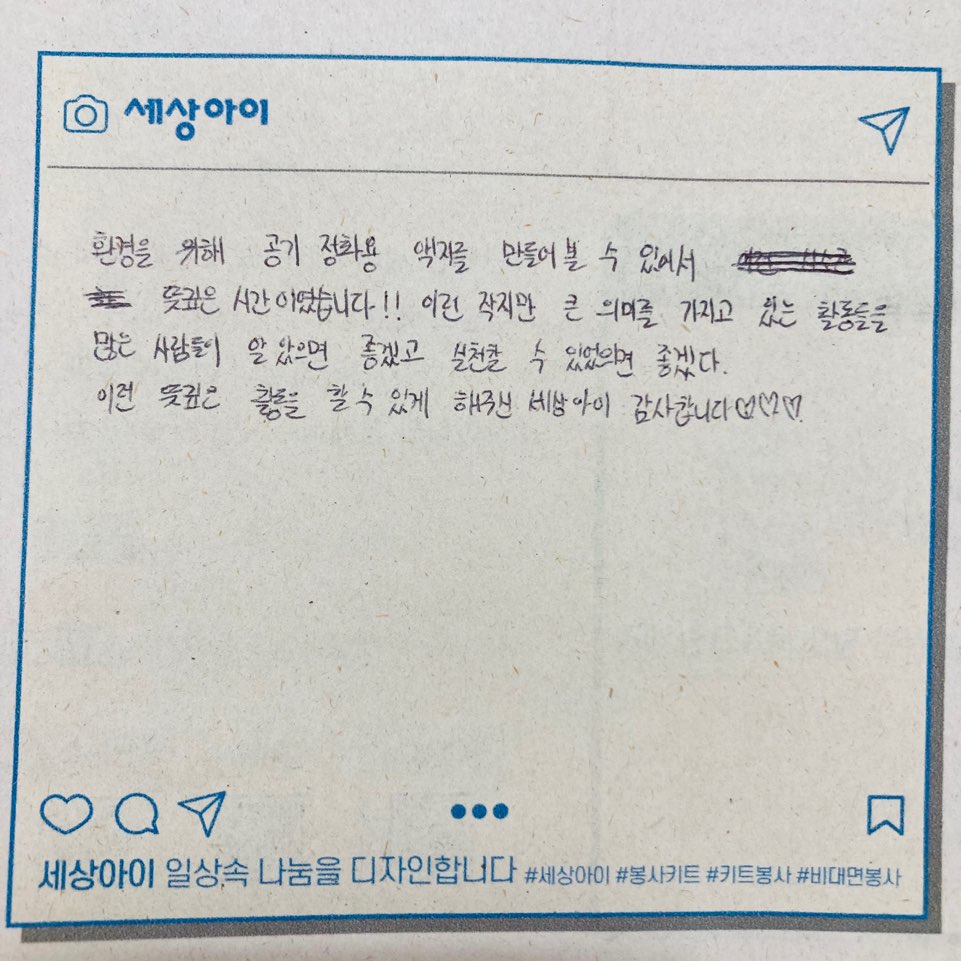 세상아이
환경을 위해 공기 정화용 액자를 만들어 볼 수 있어서
뜻깊은 시간이였습니다!! 이런 작지만 큰 의미를 가지고 있는 활동들을
많은 사람들이 알았으면 좋겠고 실천할 수 있었으면 좋겠다.
이런 뜻깊은 활동을 할 수 있게 해주신 세상아이 감사합니다♡♡♡
세상아이 일상속 나눔을 디자인합니다 #세상아이 #봉사키트 #키트봉사 #비대면봉사